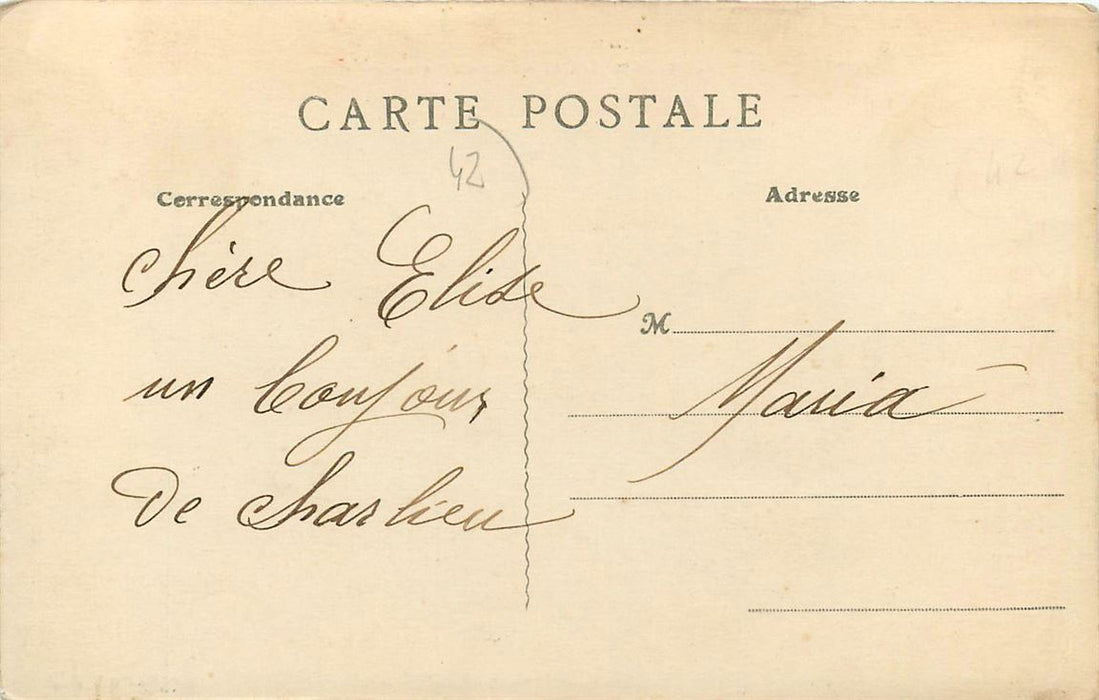 CARTE POSTALE
42
42
Correspondance
Adresse
chère Elise
un bonjour
De charlieu
M
Maria